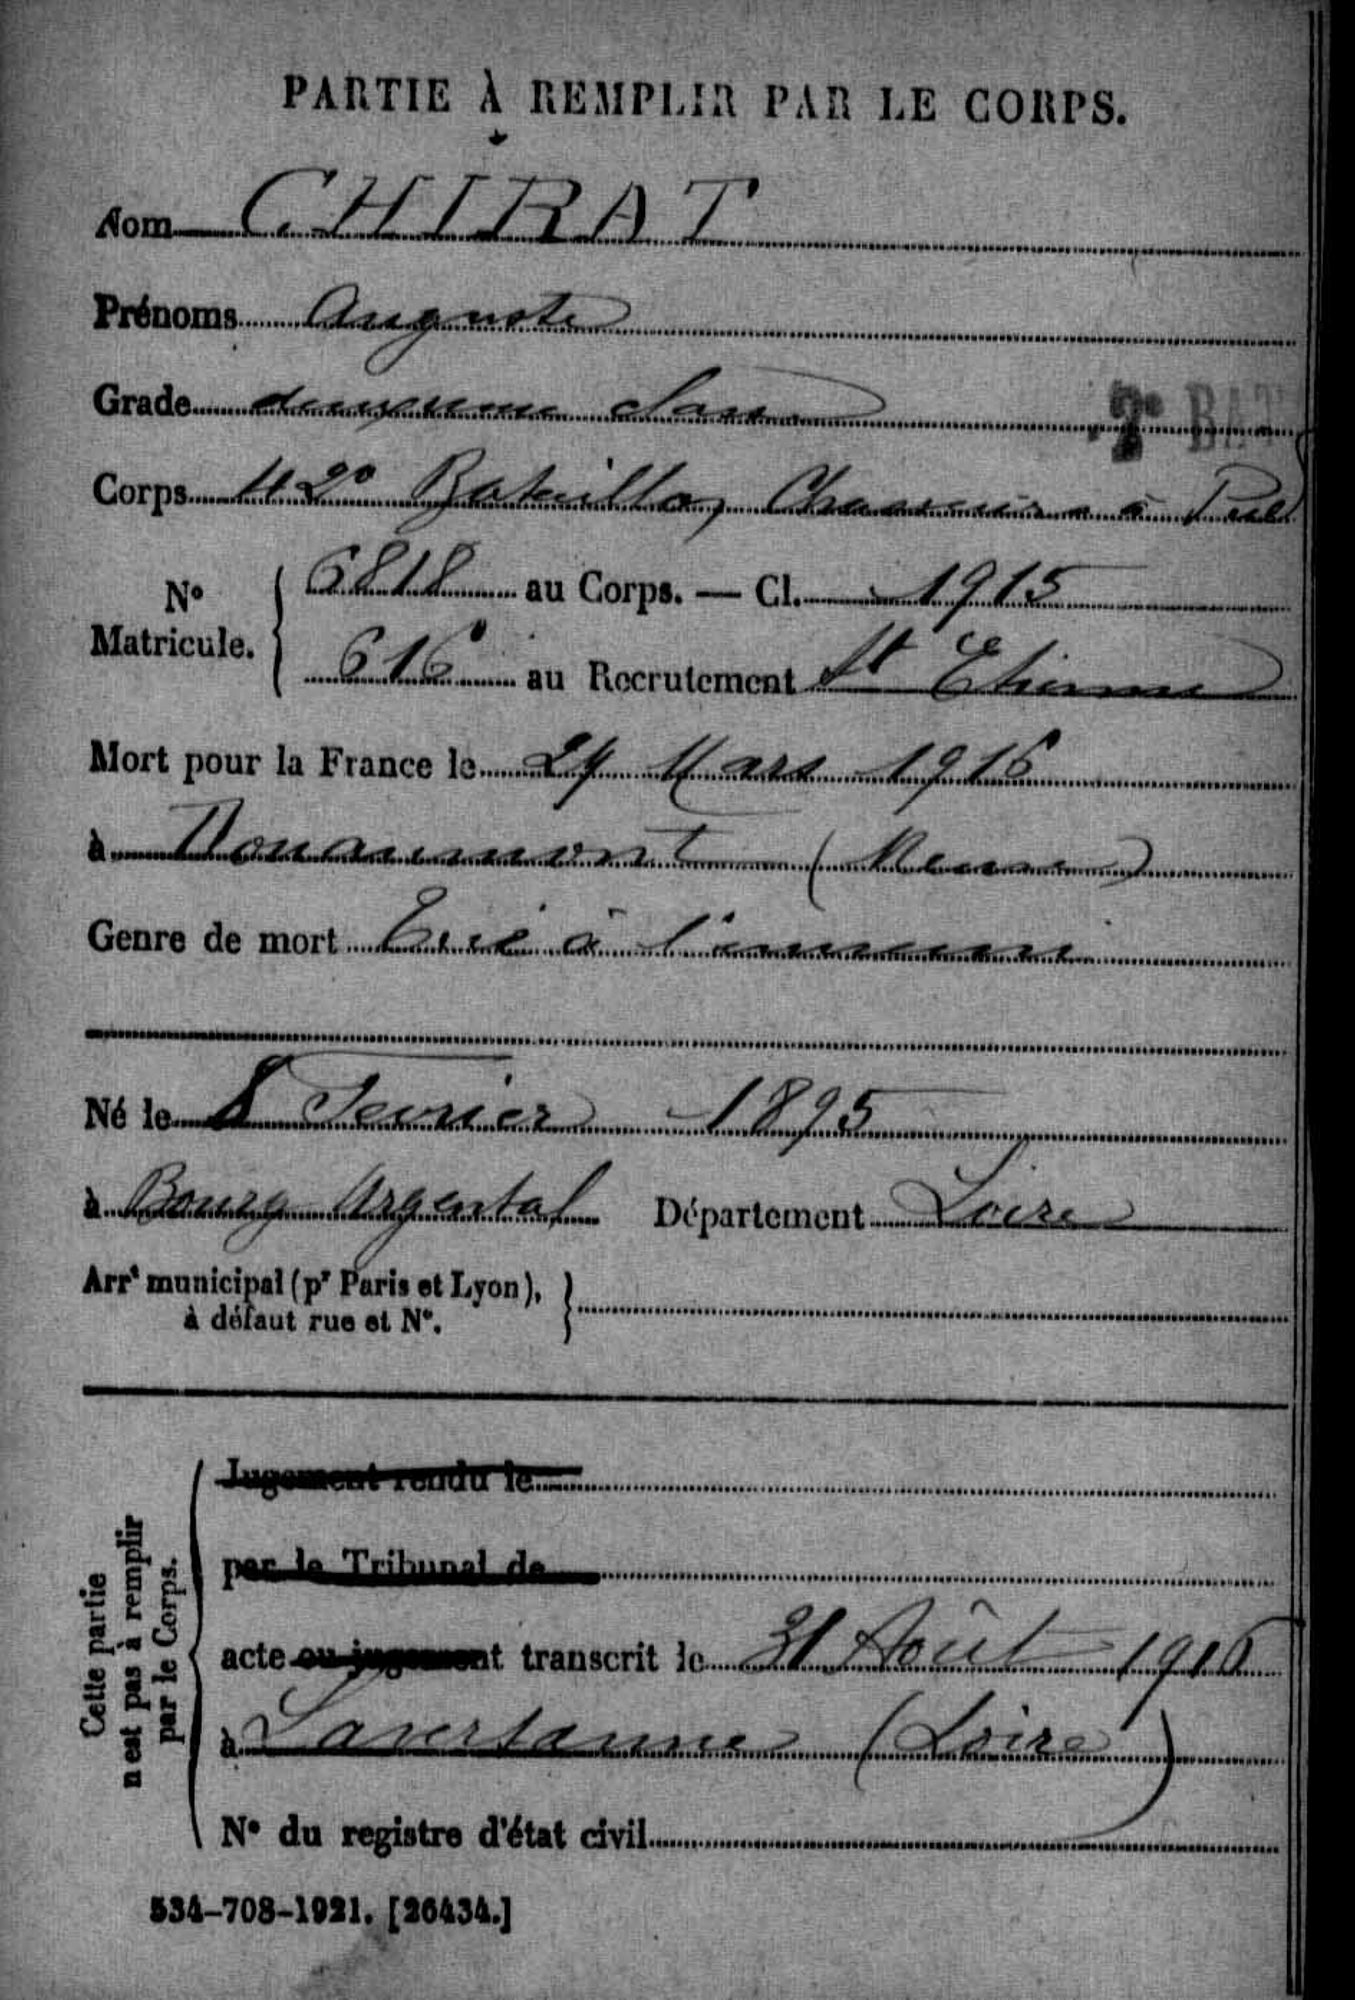 PARTIE À REMPLIR PAR LE CORPS.
Nom CHIRAT
Prénoms Auguste
Grade deuxieme classe
2e BAT
Corps 42e Bataillon Chasseurs à Pied
No Matricule. 6818 au Corps. — Cl. 1915
616 au Recrutement St Etienne
Mort pour la France le 24 Mars 1916
à Douaumont (Meuse)
Genre de mort Tué à l'ennemi
Né le 8 Fevrier 1895
à Bourg Argental Département Loire
Arrt municipal (pr Paris et Lyon),
à défaut rue et No.
Cette partie
n'est pas à remplir
par le Corps.
Jugement rendu le
par le Tribunal de
acte ou jugement transcrit le 31 Août 1916
à Laversanne (Loire)
No du registre d'état civil
534-708-1921. [26434.]